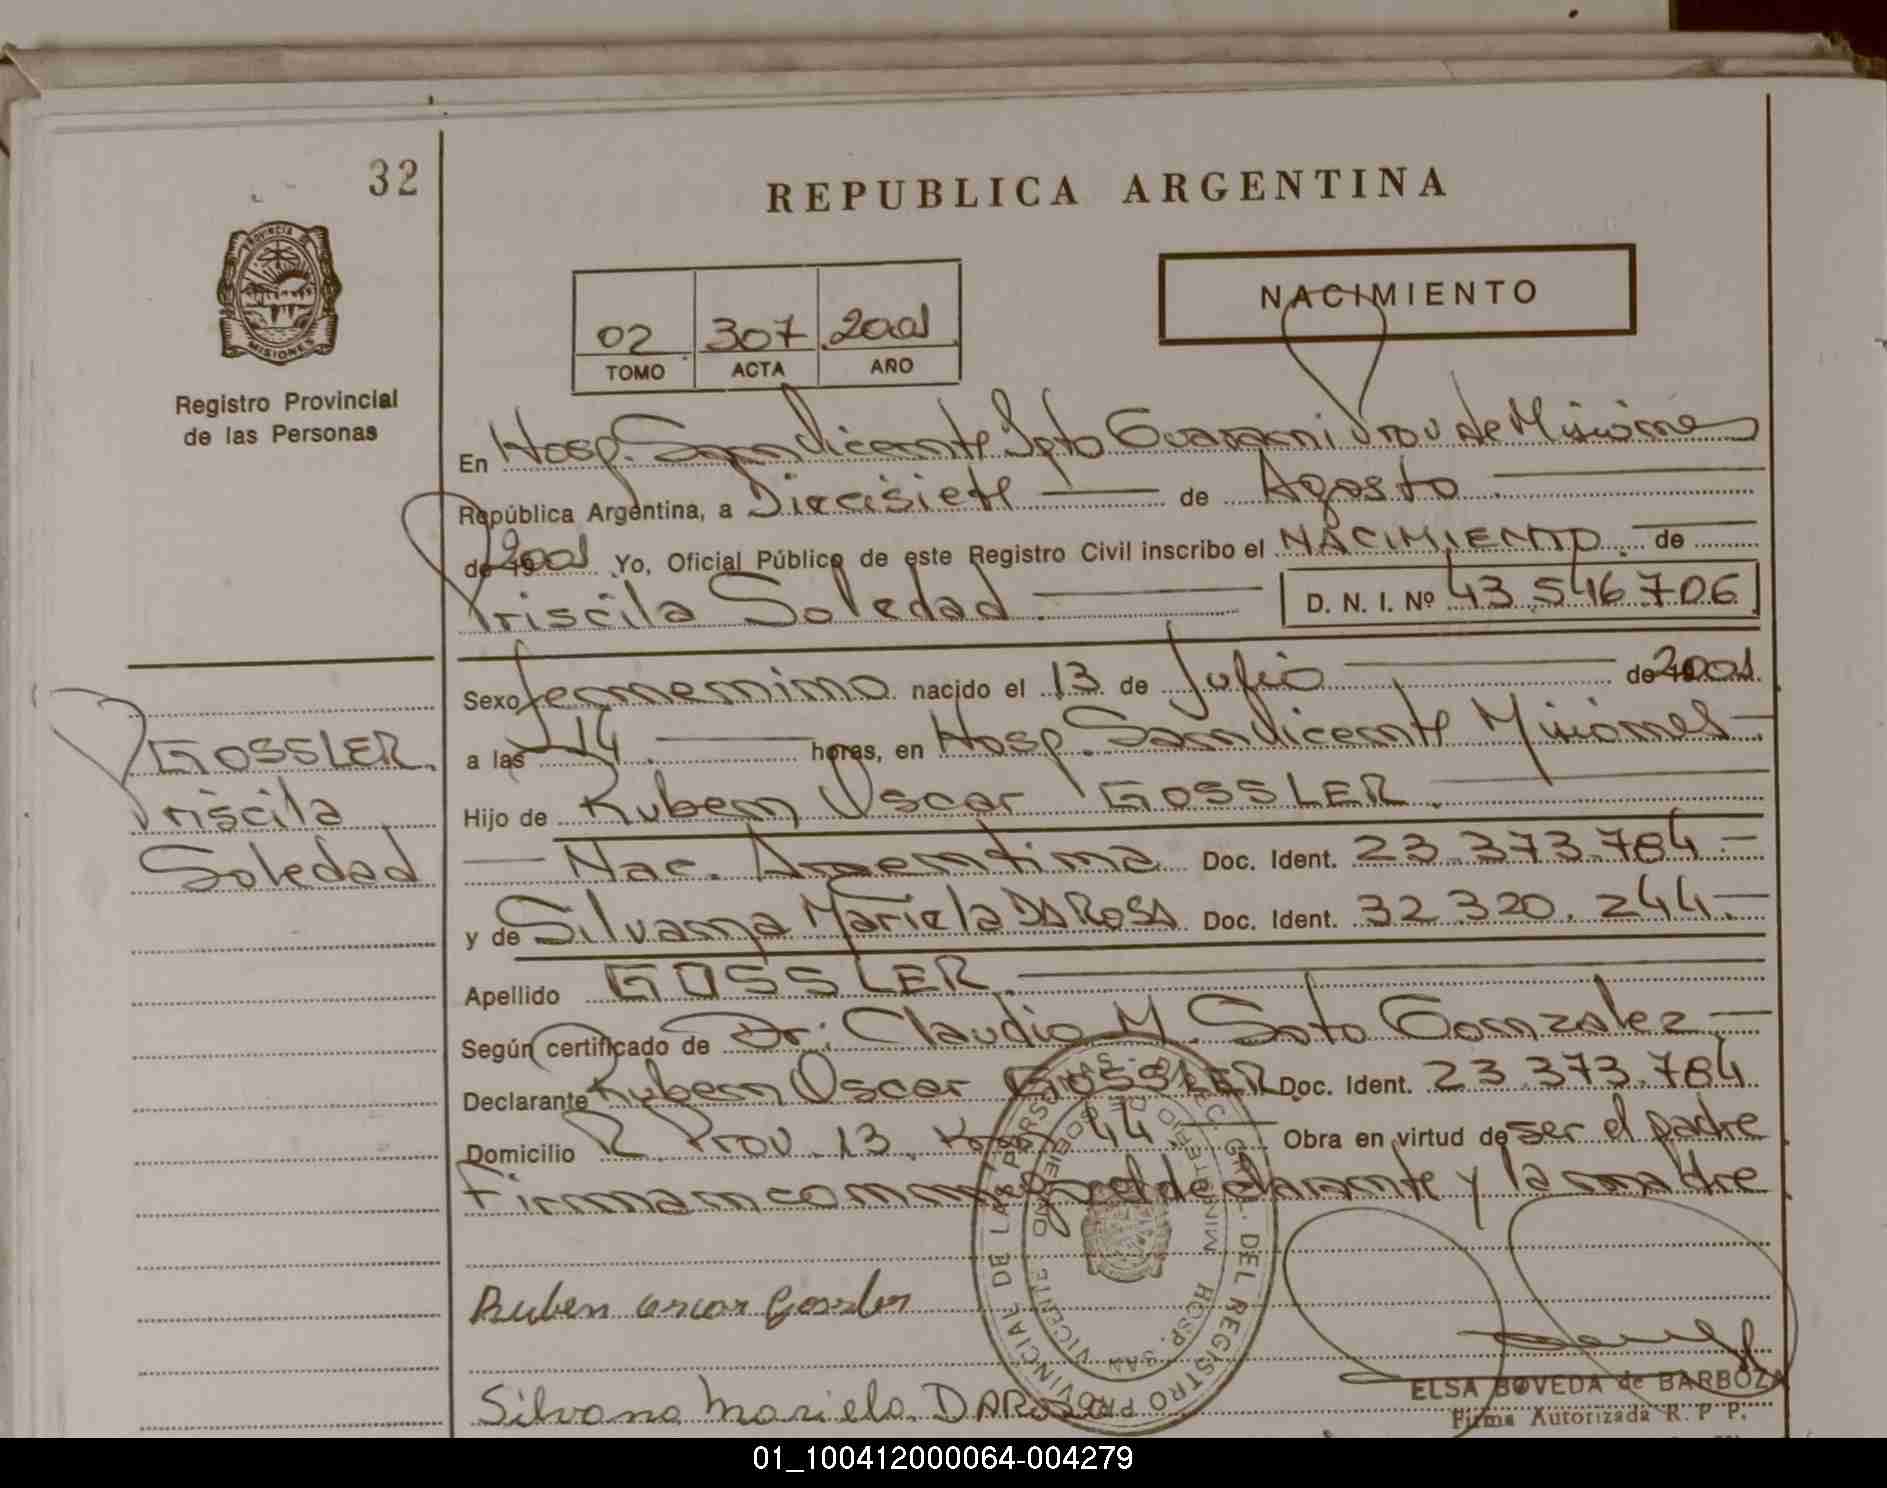 32
REPUBLICA ARGENTINA
PROVINCIA DE MISIONES
Registro Provincial
de las Personas
NACIMIENTO
02 307 2001
TOMO ACTA AÑO
En Hosp. San Vicente Dpto Guarani Prov de Misiones
República Argentina, a Diecisiete de Agosto
de 19 2001 Yo, Oficial Público de este Registro Civil inscribo el NACIMIENTO de
Priscila Soledad D. N. I. Nº 43.546.706
Sexo femenino nacido el 13 de Julio de 2001
a las 14 horas, en Hosp. San Vicente Misiones
Hijo de Ruben Oscar GOSSLER
Nac. Argentina Doc. Ident. 23.373.784
y de Silvana Mariela DA ROSA Doc. Ident. 32.320.244
Apellido GOSSLER
Según certificado de Dr. Claudio M. Soto Gonzalez
Declarante Ruben Oscar GOSSLER Doc. Ident. 23.373.784
Domicilio R. Prov. 13. Km 44. Obra en virtud de ser el padre
Firman conmigo el declarante y la madre
GOSSLER
Priscila
Soledad
Ruben oscar Gossler
Silvana Mariela DAROSA
DIREC. GRAL. DEL REGISTRO PROVINCIAL DE LAS PERSONAS
MINISTERIO DE GOBIERNO
HOSP. SAN VICENTE
ELSA BOVEDA de BARBOZA
Firma Autorizada R. P. P.
01_100412000064-004279